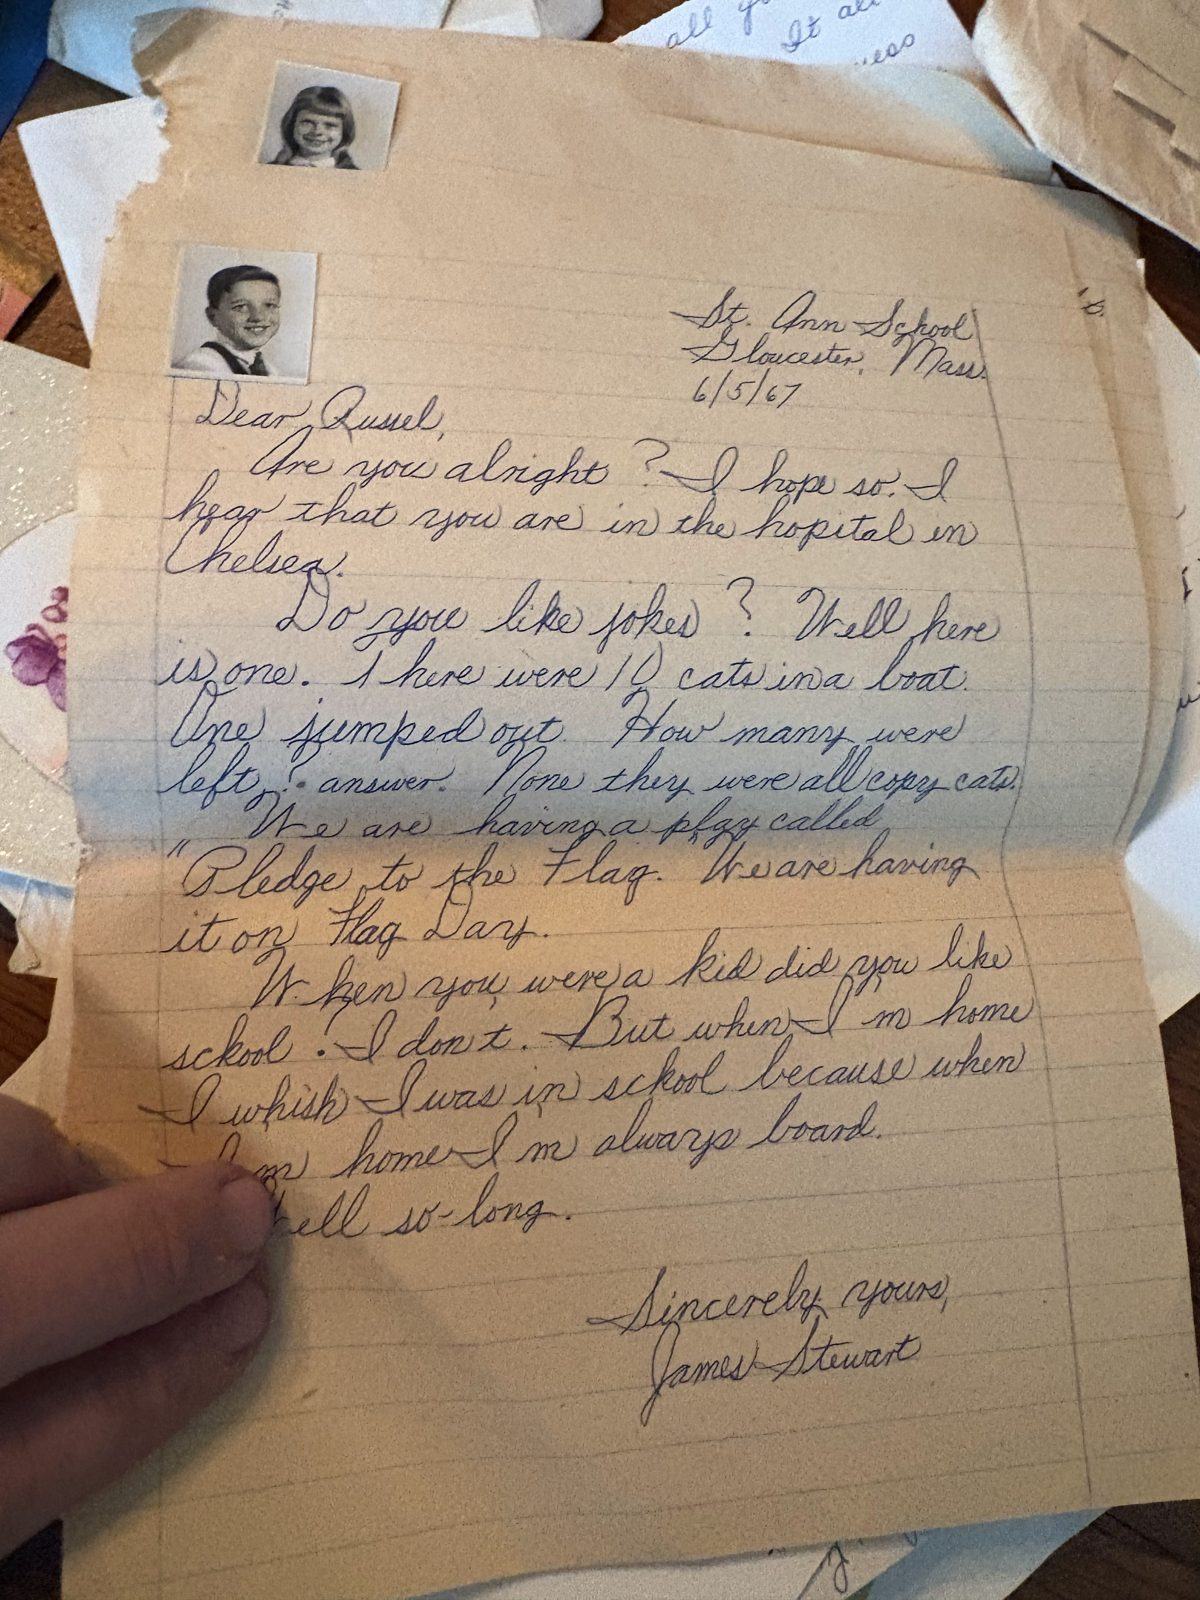 all
It all
St. Ann School
Gloucester, Mass.
6/5/67
Dear Russel,
Are you alright? I hope so. I
hear that you are in the hopital in
Chelsea.
Do you like jokes? Well here
is one. There were 10 cats in a boat.
One jumped out. How many were
left? answer. None they were all copy cats.
We are having a play called
"Pledge to the Flag." We are having
it on Flag Day.
When you were a kid did you like
school? I don't. But when I'm home
I whish I was in school because when
I'm home I'm always board.
Well so-long.
Sincerely yours,
James Stewart